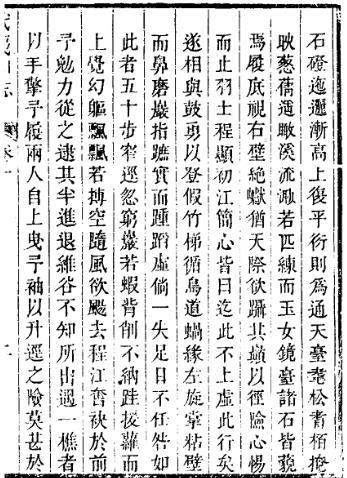 石磴迤邐漸高上復平衍則為通天臺耄松耆栢掩
映葱蒨遥瞰溪流溦若匹練而玉女鏡臺諸石皆藐
焉屐底視右壁絶巘猶天際欲躡其巔以徑險心惕
而止羽士程顯初江簡心皆曰迄此不上虛此行矣
遂相與鼓勇以登假竹梯循鳥道蝸緣左旋掌粘壁
而鼻磨巖指蹠實而踵蹈虛倘一失足目不任咎如
此者五十步窄逕忽窮巖若蝦背削不納跬援蘿而
上覺幻軀飄飄若摶空隨風欲颺去程江奮袂於前
予勉力從之逮其半進退維谷不知所出遇一樵者
以手擎予履兩人自上曳予袖以升逕之險莫甚於
武夷山志